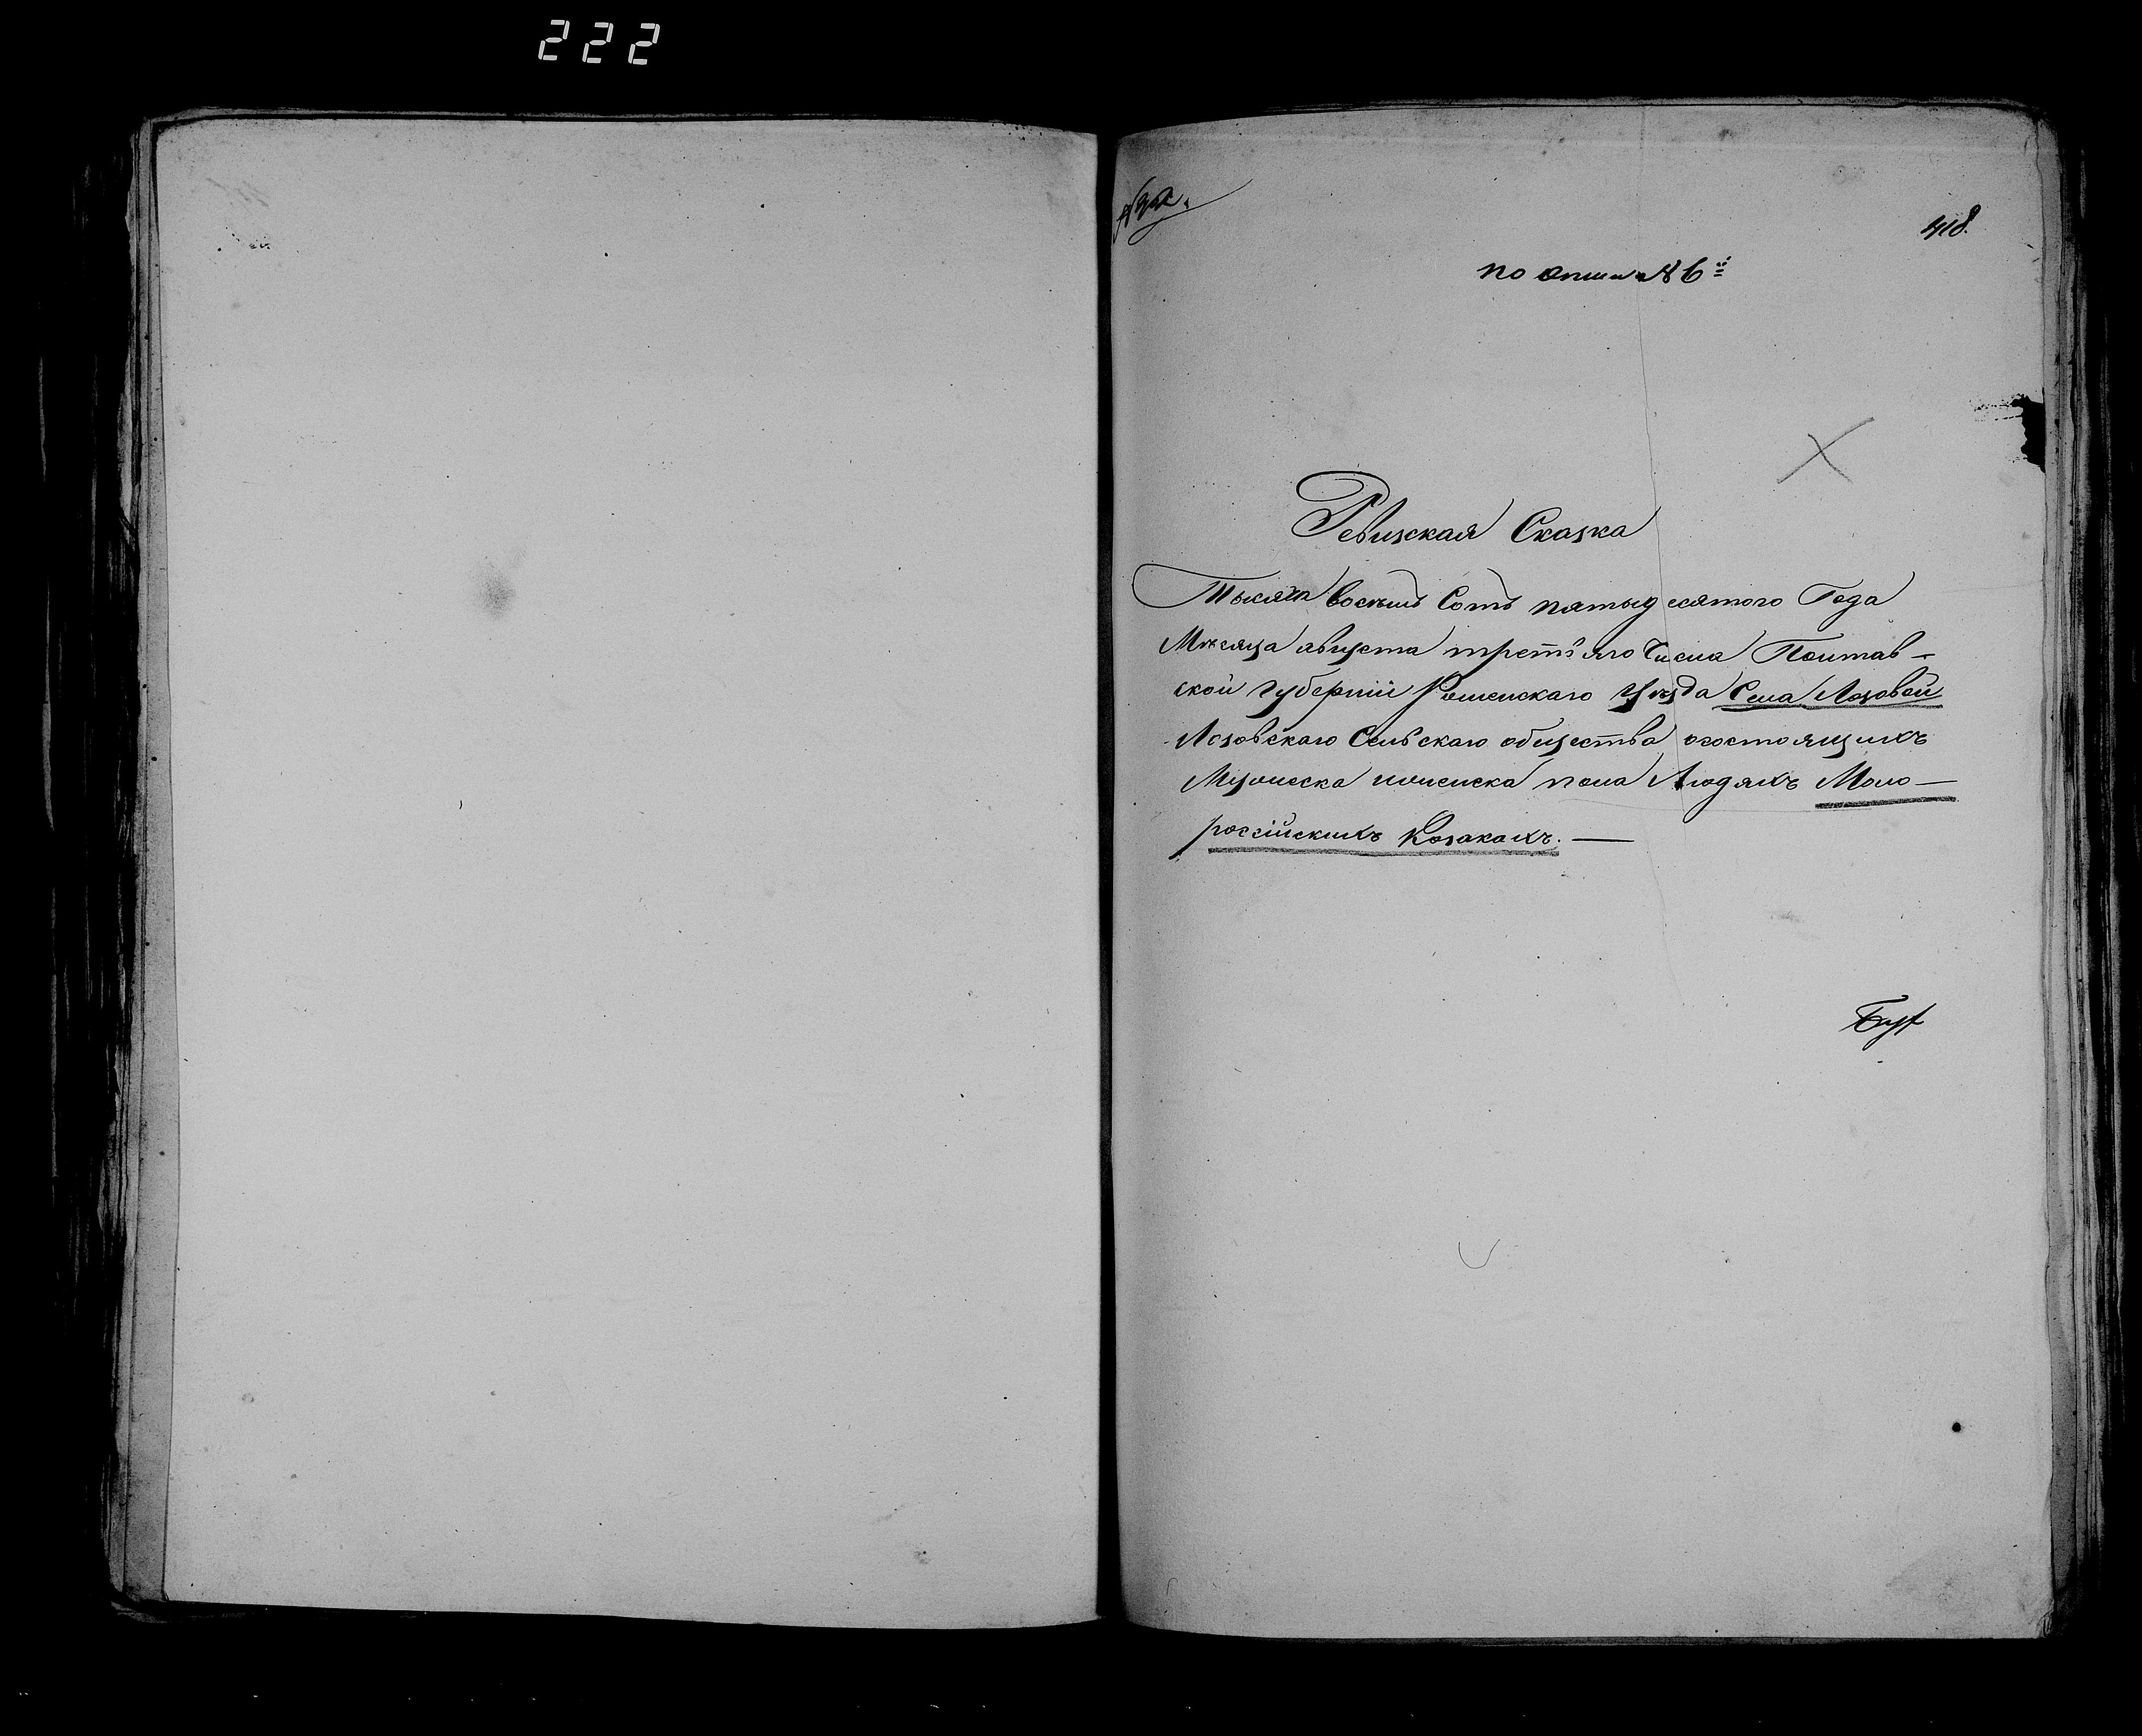 222
418.
по описи № 6й
Ревизская Сказка
Тысяча восемь Сотъ пятьдесятого Года
Мѣсяца августа третьяго Числа Полтав-
ской губерніи Роменскаго уѣзда Села Лозовой
Лозовскаго Сельскаго общества осостоящихъ
Мужеска иженска пола Людяхъ Мало-
россійскихъ Козакахъ. —